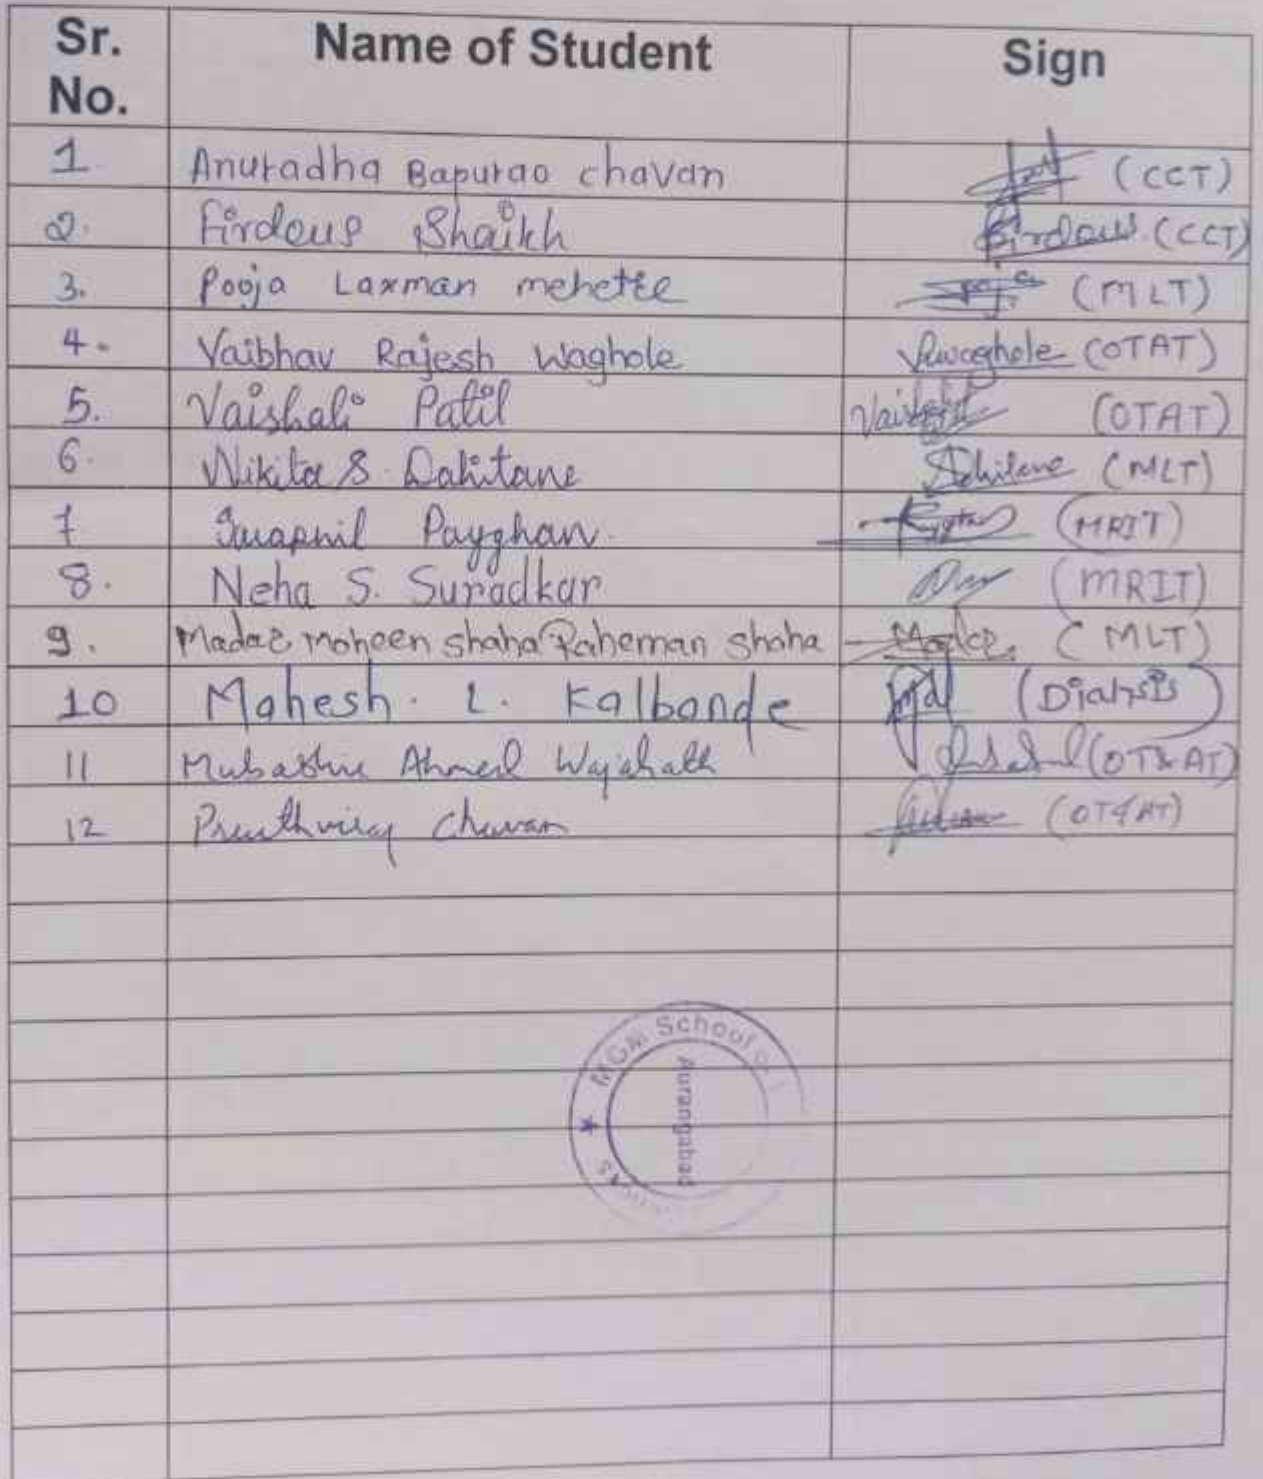 Sr. No. Name of Student Sign
1 Anuradha Bapurao chavan (CCT)
2. Firdous Shaikh Firdous (CCT)
3. Pooja Laxman mehetre (MLT)
4. Vaibhav Rajesh Waghole (OTAT)
5. Vaishali Patil (OTAT)
6. Nikita S. Dahitane (MLT)
7 Swapnil Payghan. (MRIT)
8. Neha S. Suradkar (MRIT)
9. Madar moheen shaha Raheman Shaha (MLT)
10 Mahesh. L. Kalbande (Dialysis)
11 Ahmed (OT&AT)
12 Chavan (OT&AT)
MGM School
Aurangabad